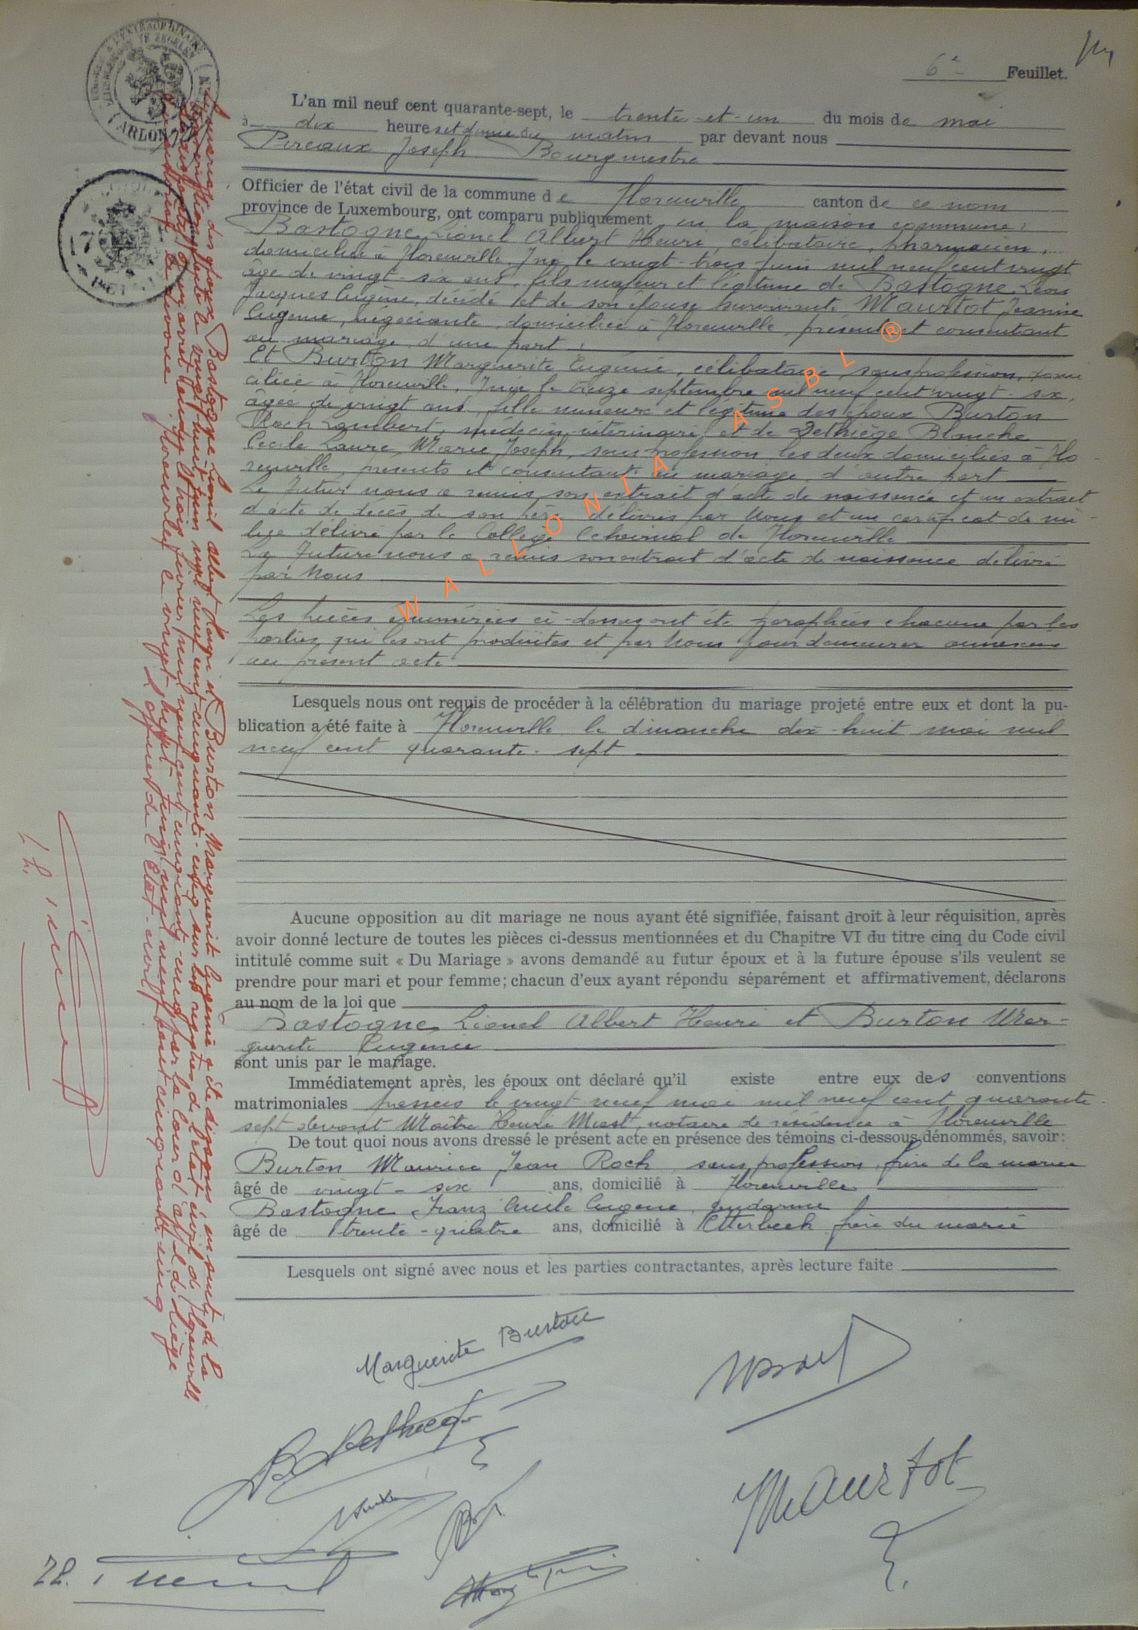 6e Feuillet.
L'an mil neuf cent quarante-sept, le trente-et-un du mois de mai
à dix heures et demie du matin par devant nous
Pireaux Joseph Bourgmestre
Officier de l'état civil de la commune de Florenville canton de ce nom
province de Luxembourg, ont comparu publiquement en la maison commune :
Bastogne Lionel Albert Henri, célibataire, pharmacien,
domicilié à Florenville, y né le vingt-trois juin mil neuf cent vingt
âgé de vingt-six ans, fils majeur et légitime de Bastogne Léon
Jacques Eugène, décédé et de son épouse survivante Maurtot Jeanne
Eugénie, négociante, domiciliée à Florenville, présente et consentant
au mariage d'une part ;
Et Burton Marguerite Eugénie, célibataire, sans profession, domi
ciliée à Florenville, y née le treize septembre mil neuf cent vingt-six,
agée de vingt ans, fille mineure et légitime des époux Burton
Roch Lambert, médecin vétérinaire et de Dethiège Blanche
Cécile Laure Marie Joseph, sans profession, les deux domiciliés à Flo-
renville, présents et consentant au mariage d'autre part
Le Futur nous a remis son extrait d'acte de naissance et un extrait
d'acte de décès de son père délivrés par Nous et un certificat de mi-
lice délivré par le Collège Echevinal de Florenville
La Future nous a remis son extrait d'acte de naissance délivré
par Nous
Les pièces énumérées ci-dessus ont été paraphées chacune par les
parties qui les ont produites et par Nous pour demeurer annexées
au présent acte
Lesquels nous ont requis de procéder à la célébration du mariage projeté entre eux et dont la pu-
blication a été faite à Florenville le dimanche dix-huit mai mil
neuf cent quarante-sept
Aucune opposition au dit mariage ne nous ayant été signifiée, faisant droit à leur réquisition, après
avoir donné lecture de toutes les pièces ci-dessus mentionnées et du Chapitre VI du titre cinq du Code civil
intitulé comme suit « Du Mariage » avons demandé au futur époux et à la future épouse s'ils veulent se
prendre pour mari et pour femme; chacun d'eux ayant répondu séparément et affirmativement, déclarons
au nom de la loi que
Bastogne Lionel Albert Henri et Burton Mar-
guerite Eugénie
sont unis par le mariage.
Immédiatement après, les époux ont déclaré qu'il existe entre eux des conventions
matrimoniales passées le vingt-neuf mai mil neuf cent quarante-
sept devant Maître Henri notaire de résidence à Florenville
De tout quoi nous avons dressé le présent acte en présence des témoins ci-dessous dénommés, savoir:
Burton Maurice Jean Roch, sans profession, frère de la mariée
âgé de vingt-six ans, domicilié à Florenville
Bastogne Franz Emile Eugène, gendarme
âgé de trente-quatre ans, domicilié à Etterbeek frère du marié
Lesquels ont signé avec nous et les parties contractantes, après lecture faite
Marguerite Burton
Maurtot
Le mariage des époux Bastogne Lionel Albert Henri et Burton Marguerite Eugénie a été dissous en suite de la
transcription faite le vingt-huit juin mil neuf cent cinquante-cinq sur les registres de l'état civil de Florenville
du dispositif d'un arrêt rendu le trois février mil neuf cent cinquante-cinq par la Cour d'appel de Liège
autorisant le divorce Florenville le vingt-huit juin mil neuf cent cinquante-cinq
L'officier de l'Etat-civil
ARLON
WALLONIA ASBL ®